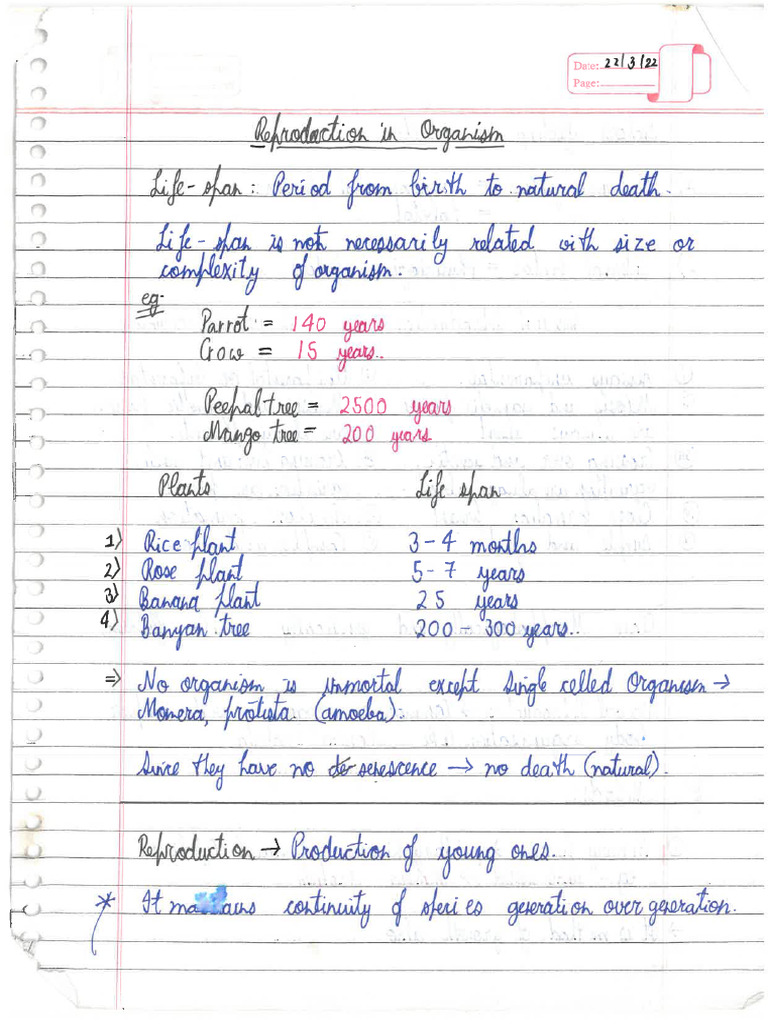 Date: 22/3/22
Page:
Reproduction in Organism
Life-span: Period from birth to natural death.
Life-span is not necessarily related with size or
complexity of organism.
eg-
Parrot = 140 years
Crow = 15 years..
Peepal tree = 2500 years
Mango tree = 200 years
Plants Life span
1) Rice plant 3-4 months
2) Rose plant 5-7 years
3) Banana plant 25 years
4) Banyan tree 200-300 years..
⇒ No organism is immortal except Single celled Organism →
Monera, protista. (amoeba).
Since they have no senescence → no death (natural).
Reproduction → Production of young ones.
* It maintains continuity of species generation over generation.